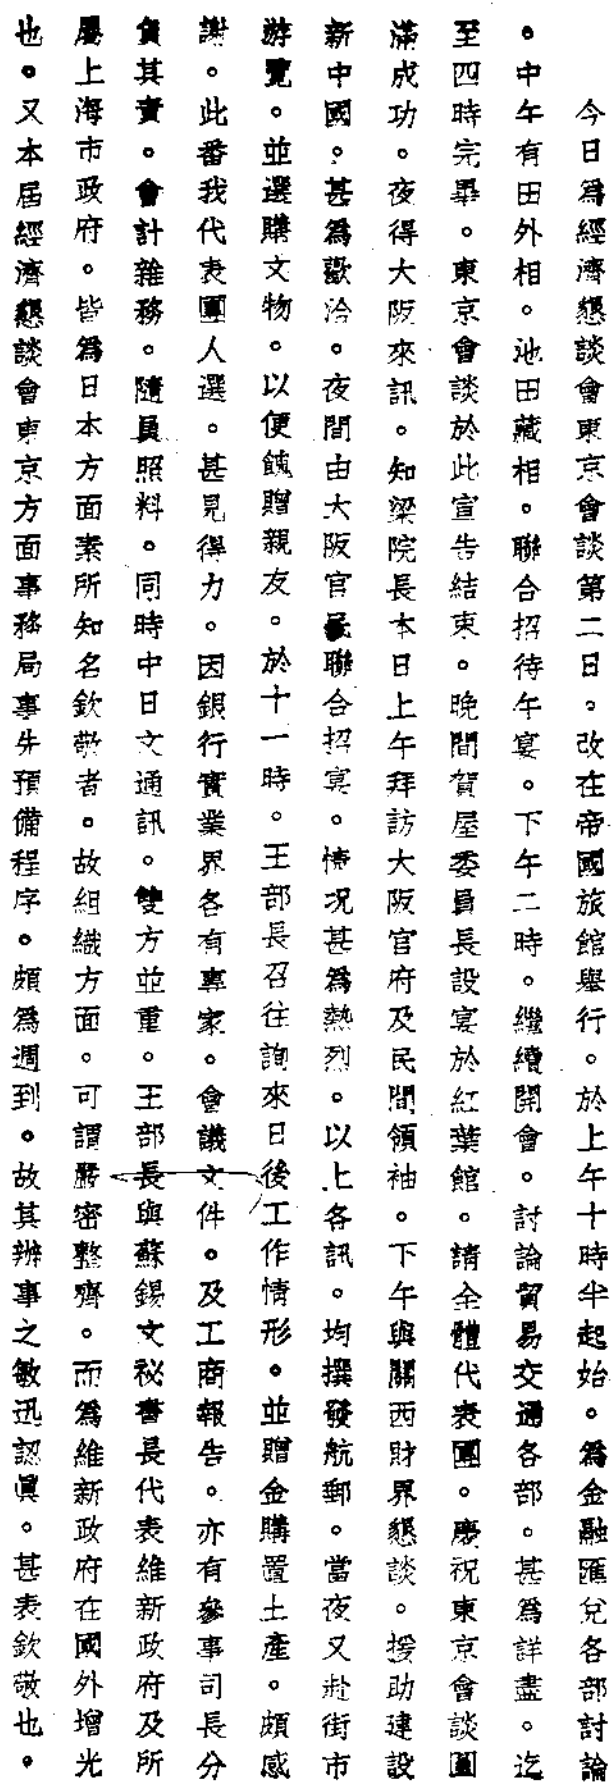 今日爲經濟懇談會東京會談第二日。改在帝國旅館舉行。於上午十時半起始。爲金融匯兌各部討論
。中午有田外相。池田藏相。聯合招待午宴。下午二時。繼續開會。討論貿易交通各部。甚爲詳盡。迄
至四時完畢。東京會談於此宣告結束。晚間賀屋委員長設宴於紅葉館。請全體代表團。慶祝東京會談圓
滿成功。夜得大阪來訊。知梁院長本日上午拜訪大阪官府及民間領袖。下午與關西財界懇談。援助建設
新中國。甚爲歡洽。夜間由大阪官民聯合招宴。情况甚爲熱烈。以上各訊。均撰發航郵。當夜又赴街市
游覽。並選購文物。以便餽贈親友。於十一時。王部長召往詢來日後工作情形。並贈金購置土產。頗感
謝。此番我代表團人選。甚見得力。因銀行實業界各有專家。會議文件。及工商報告。亦有參事司長分
負其責。會計雜務。隨員照料。同時中日文通訊。雙方並重。王部長與蘇錫文秘書長代表維新政府及所
屬上海市政府。皆爲日本方面素所知名欽敬者。故組織方面。可謂嚴密整齊。而爲維新政府在國外增光
也。又本屆經濟懇談會東京方面事務局事先預備程序。頗爲週到。故其辦事之敏迅認眞。甚表欽敬也。